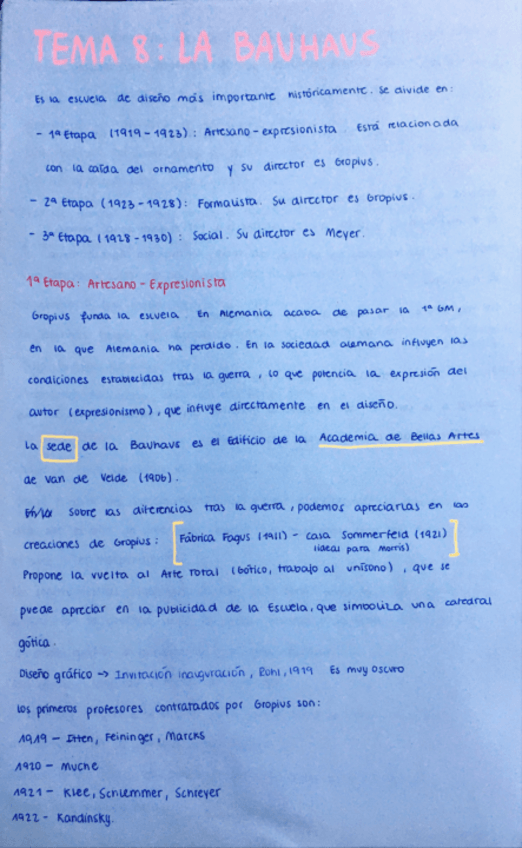 TEMA 8: LA BAUHAUS
Es la escuela de diseño más importante históricamente. Se divide en:
- 1ª Etapa (1919-1923): Artesano-expresionista. Está relacionada
con la caída del ornamento y su director es Gropius.
- 2ª Etapa (1923-1928): Formalista. Su director es Gropius.
- 3ª Etapa (1928-1930): Social. Su director es Meyer.
1ª Etapa: Artesano-Expresionista
Gropius funda la escuela. En Alemania acaba de pasar la 1ª GM,
en la que Alemania ha perdido. En la sociedad alemana influyen las
condiciones establecidas tras la guerra, lo que potencia la expresión del
autor (expresionismo), que influye directamente en el diseño.
La sede de la Bauhaus es el Edificio de la Academia de Bellas Artes
de Van de Velde (1906).
Sobre las diferencias tras la guerra, podemos apreciarlas en las
creaciones de Gropius: [Fábrica Fagus (1911) - casa Sommerfeld (1921)]
(ideas para Morris)
Propone la vuelta al Arte Total (Gótico, trabajo al unísono), que se
puede apreciar en la publicidad de la Escuela, que simboliza una catedral
gótica.
Diseño gráfico -> Invitación inauguración, Rohl, 1919 Es muy oscuro
Los primeros profesores contratados por Gropius son:
1919 - Itten, Feininger, Marcks
1920 - Muche
1921 - Klee, Schlemmer, Schreyer
1922 - Kandinsky.